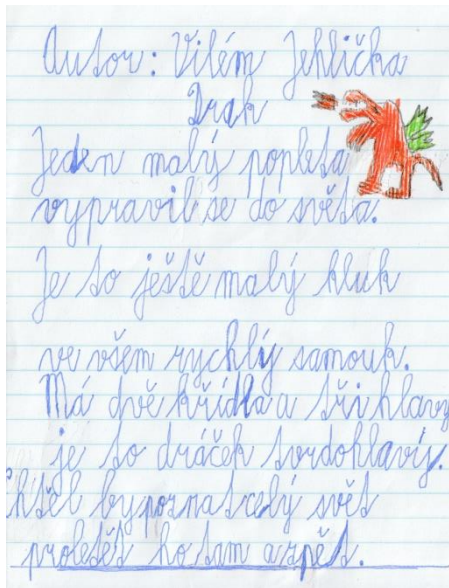 Autor: Vilém Jehlička
Drak
Jeden malý popleta
vypravil se do světa.
Je to ještě malý kluk
ve všem rychlý samouk.
Má dvě křídla a tři hlavy
je to dráček tvrdohlavý.
Chtěl by poznat celý svět
proletět ho tam a zpět.